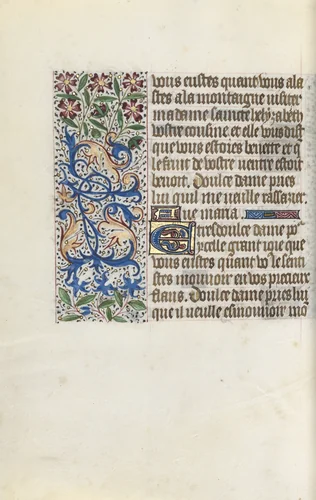 vous eustes quant vous ala
stes a la montaigne visiter
ma dame saincte helyzabeth
vostre cousine et elle vous dist
que vous estoies benoite et q
le fruit de vostre ventre estoit
benoit. Doulce dame pries
luy quil me veille rassazier.
Aue maria.
Et tresdoulce dame pʳ
ycelle grant ioie que
vous eustes quant vo⁹ le sen
tistes mouuoir en vos precieux
flans. Doulce dame pries luy
que il vueille esmouuoir mō